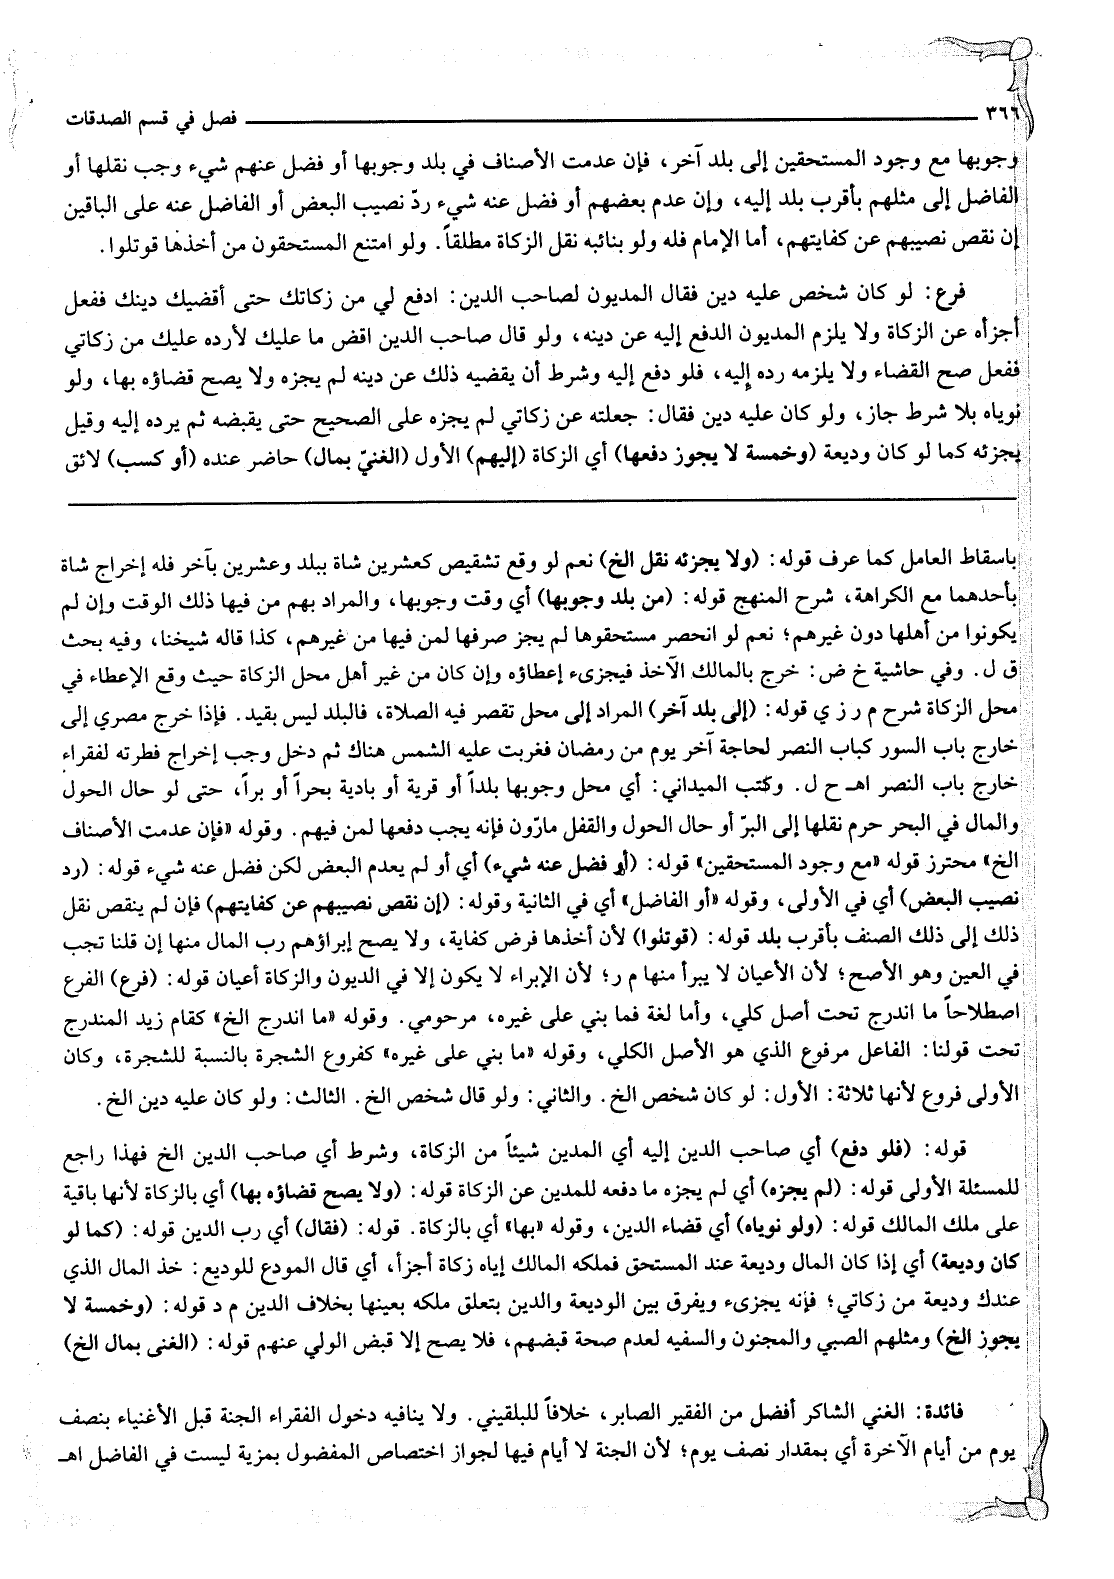 ٣٦٦ فصل في قسم الصدقات
وجوبها مع وجود المستحقين إلى بلد آخر، فإن عدمت الأصناف في بلد وجوبها أو فضل عنهم شيء وجب نقلها أو
الفاضل إلى مثلهم بأقرب بلد إليه، وإن عدم بعضهم أو فضل عنه شيء ردّ نصيب البعض أو الفاضل عنه على الباقين
إن نقص نصيبهم عن كفايتهم، أما الإمام فله ولو بنائبه نقل الزكاة مطلقاً. ولو امتنع المستحقون من أخذها قوتلوا.
فرع: لو كان شخص عليه دين فقال المديون لصاحب الدين: ادفع لي من زكاتك حتى أقضيك دينك ففعل
أجزأه عن الزكاة ولا يلزم المديون الدفع إليه عن دينه، ولو قال صاحب الدين اقض ما عليك لأرده عليك من زكاتي
ففعل صح القضاء ولا يلزمه رده إليه، فلو دفع إليه وشرط أن يقضيه ذلك عن دينه لم يجزه ولا يصح قضاؤه بها، ولو
نوياه بلا شرط جاز، ولو كان عليه دين فقال: جعلته عن زكاتي لم يجزه على الصحيح حتى يقبضه ثم يرده إليه وقيل
يجزئه كما لو كان وديعة (وخمسة لا يجوز دفعها) أي الزكاة (إليهم) الأول (الغنيّ بمال) حاضر عنده (أو كسب) لائق
باسقاط العامل كما عرف قوله: (ولا يجزئه نقل الخ) نعم لو وقع تشقيص كعشرين شاة ببلد وعشرين بآخر فله إخراج شاة
بأحدهما مع الكراهة، شرح المنهج قوله: (من بلد وجوبها) أي وقت وجوبها، والمراد بهم من فيها ذلك الوقت وإن لم
يكونوا من أهلها دون غيرهم؛ نعم لو انحصر مستحقوها لم يجز صرفها لمن فيها من غيرهم، كذا قاله شيخنا، وفيه بحث
ق ل. وفي حاشية خ ض: خرج بالمالك الآخذ فيجزىء إعطاؤه وإن كان من غير أهل محل الزكاة حيث وقع الإعطاء في
محل الزكاة شرح م ر ز ي قوله: (إلى بلد آخر) المراد إلى محل تقصر فيه الصلاة، فالبلد ليس بقيد. فإذا خرج مصري إلى
خارج باب السور كباب النصر لحاجة آخر يوم من رمضان فغربت عليه الشمس هناك ثم دخل وجب إخراج فطرته لفقراء
خارج باب النصر اهـ ح ل. وكتب الميداني: أي محل وجوبها بلداً أو قرية أو بادية بحراً أو براً، حتى لو حال الحول
والمال في البحر حرم نقلها إلى البرّ أو حال الحول والقفل مارّون فإنه يجب دفعها لمن فيهم. وقوله «فإن عدمت الأصناف
الخ» محترز قوله «مع وجود المستحقين» قوله: (أو فضل عنه شيء) أي أو لم يعدم البعض لكن فضل عنه شيء قوله: (رد
نصيب البعض) أي في الأولى، وقوله «أو الفاضل» أي في الثانية وقوله: (إن نقص نصيبهم عن كفايتهم) فإن لم ينقص نقل
ذلك إلى ذلك الصنف بأقرب بلد قوله: (قوتلوا) لأن أخذها فرض كفاية، ولا يصح إبراؤهم رب المال منها إن قلنا تجب
في العين وهو الأصح؛ لأن الأعيان لا يبرأ منها م ر؛ لأن الإبراء لا يكون إلا في الديون والزكاة أعيان قوله: (فرع) الفرع
اصطلاحاً ما اندرج تحت أصل كلي، وأما لغة فما بني على غيره، مرحومي. وقوله «ما اندرج الخ» كقام زيد المندرج
تحت قولنا: الفاعل مرفوع الذي هو الأصل الكلي، وقوله «ما بني على غيره» كفروع الشجرة بالنسبة للشجرة، وكان
الأولى فروع لأنها ثلاثة: الأول: لو كان شخص الخ. والثاني: ولو قال شخص الخ. الثالث: ولو كان عليه دين الخ.
قوله: (فلو دفع) أي صاحب الدين إليه أي المدين شيئاً من الزكاة، وشرط أي صاحب الدين الخ فهذا راجع
للمسئلة الأولى قوله: (لم يجزه) أي لم يجزه ما دفعه للمدين عن الزكاة قوله: (ولا يصح قضاؤه بها) أي بالزكاة لأنها باقية
على ملك المالك قوله: (ولو نوياه) أي قضاء الدين، وقوله «بها» أي بالزكاة. قوله: (فقال) أي رب الدين قوله: (كما لو
كان وديعة) أي إذا كان المال وديعة عند المستحق فملكه المالك إياه زكاة أجزأ، أي قال المودع للوديع: خذ المال الذي
عندك وديعة من زكاتي؛ فإنه يجزىء ويفرق بين الوديعة والدين بتعلق ملكه بعينها بخلاف الدين م د قوله: (وخمسة لا
يجوز الخ) ومثلهم الصبي والمجنون والسفيه لعدم صحة قبضهم، فلا يصح إلا قبض الولي عنهم قوله: (الغنى بمال الخ)
فائدة: الغني الشاكر أفضل من الفقير الصابر، خلافاً للبلقيني. ولا ينافيه دخول الفقراء الجنة قبل الأغنياء بنصف
يوم من أيام الآخرة أي بمقدار نصف يوم؛ لأن الجنة لا أيام فيها لجواز اختصاص المفضول بمزية ليست في الفاضل اهـ